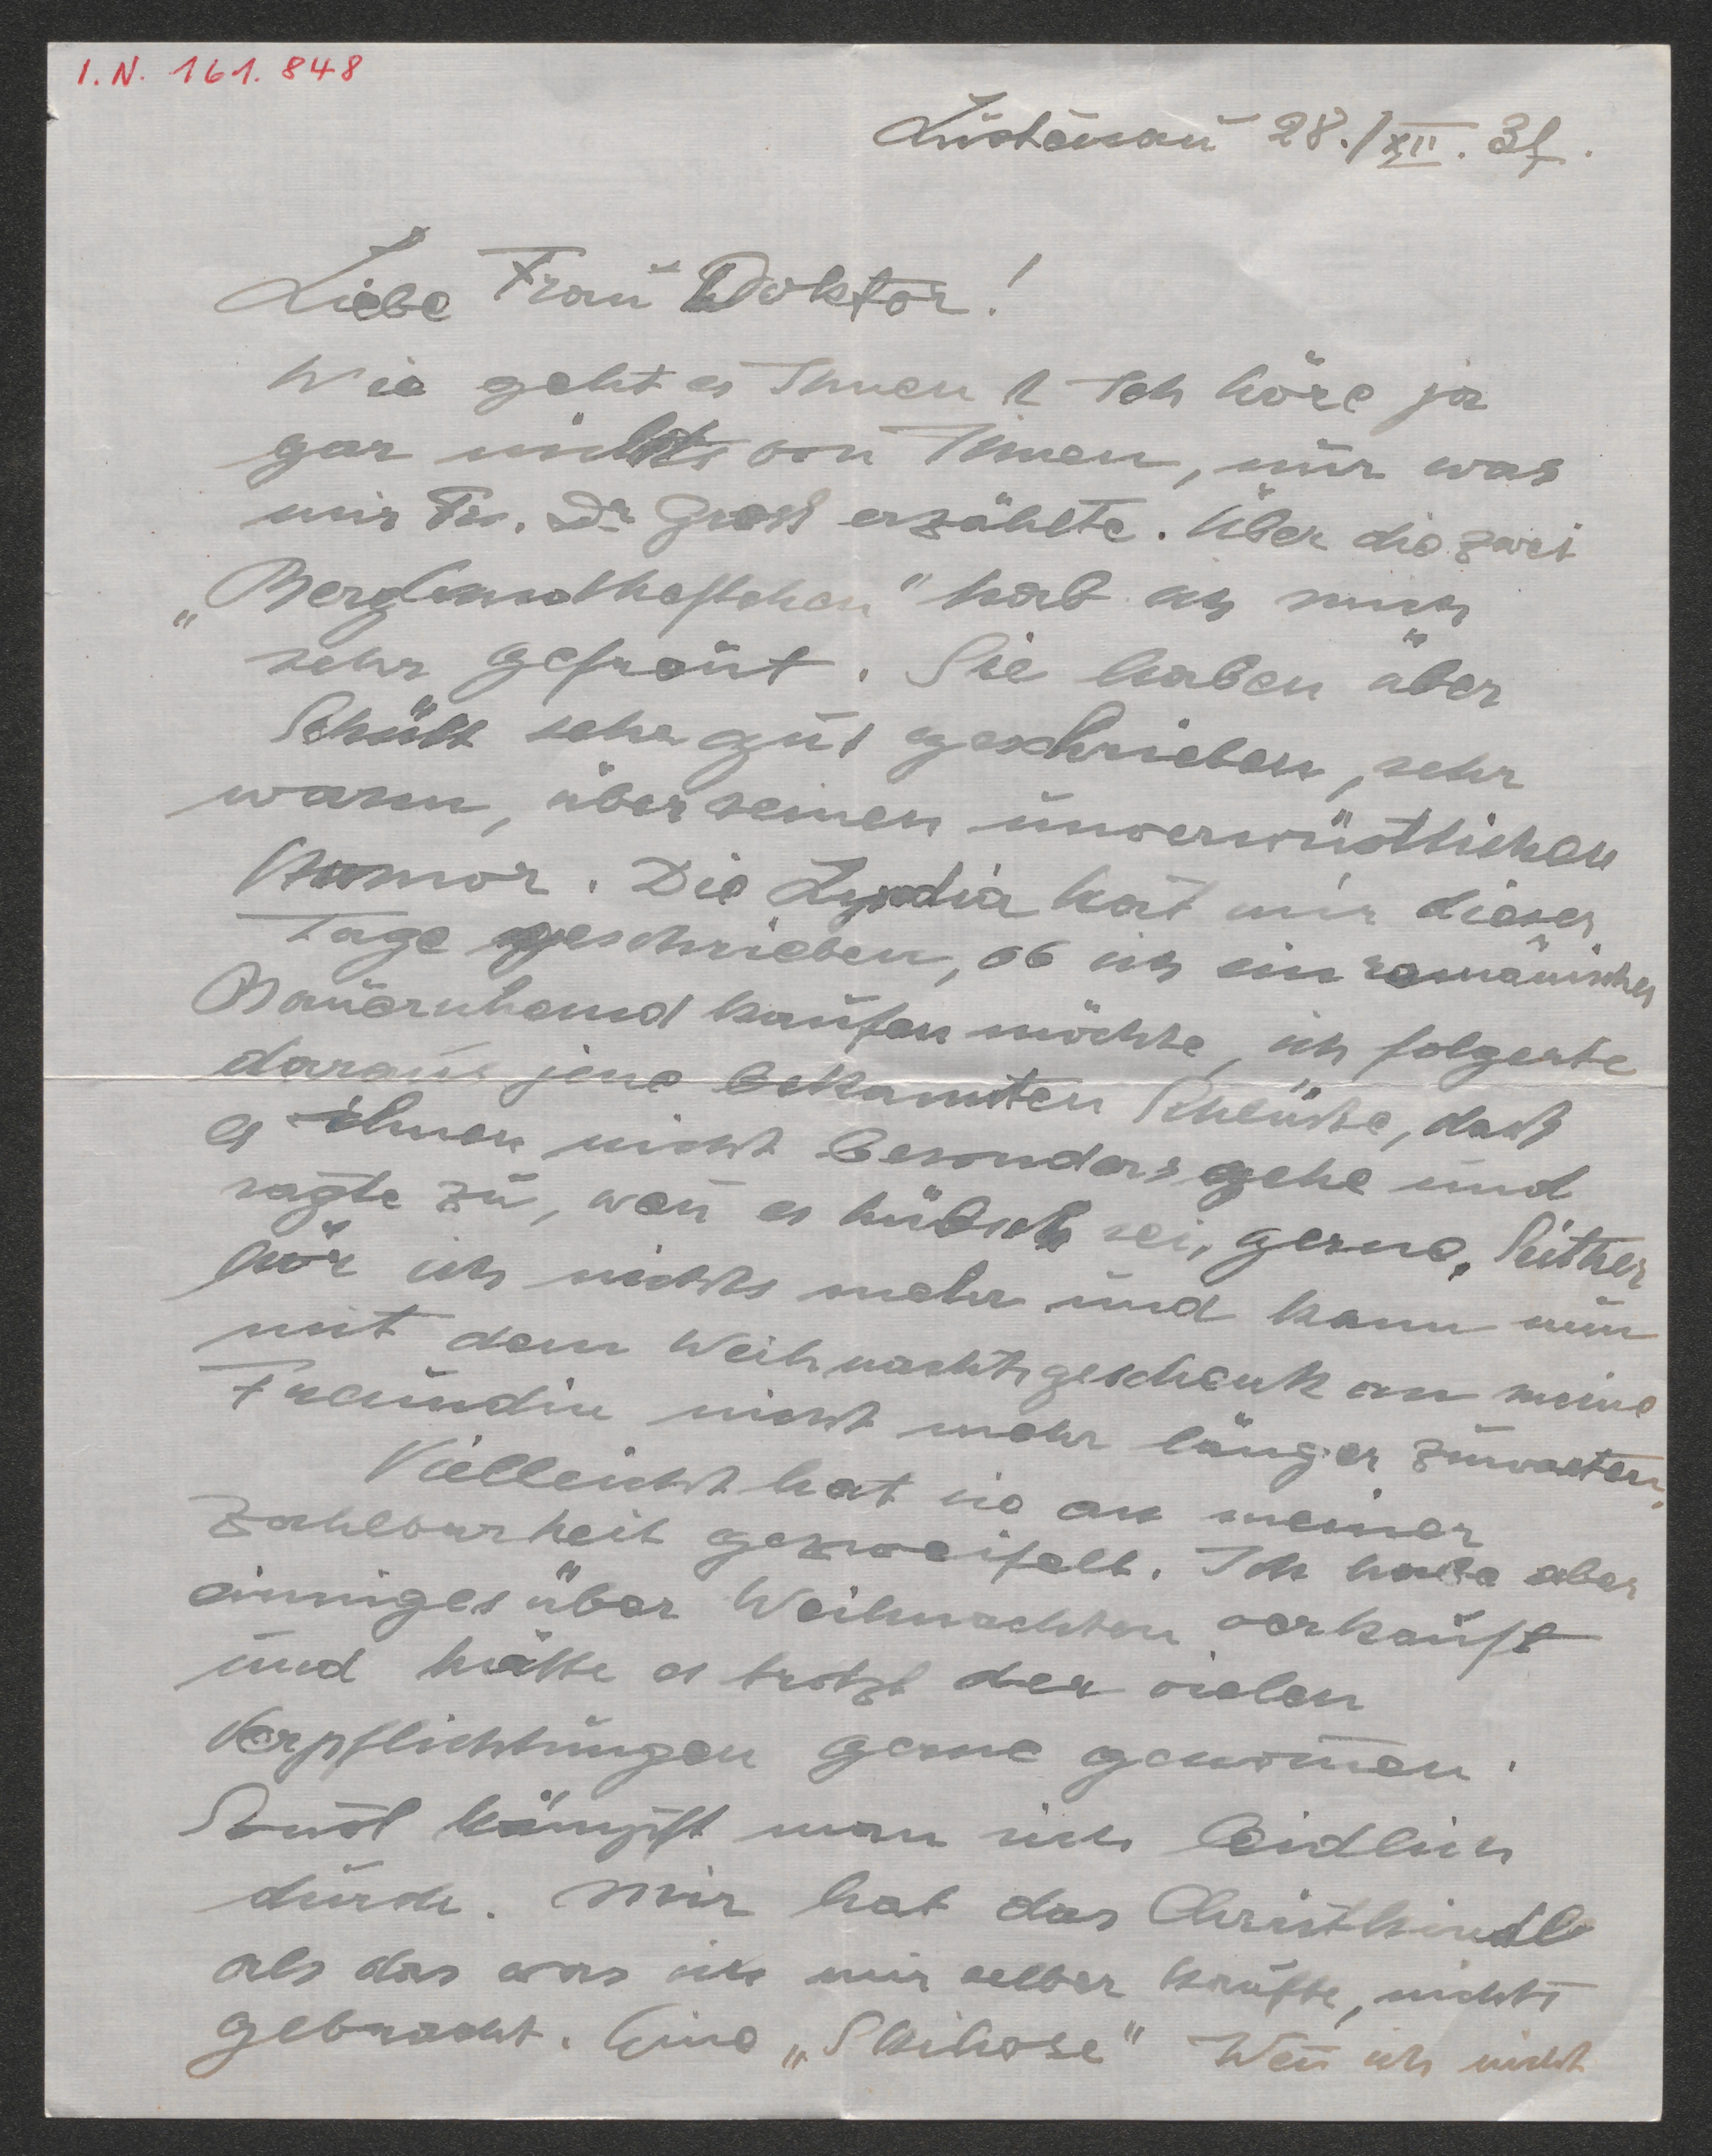 I.N. 161.848
Lustenau 28./XII. 31.
Liebe Frau Doktor!
Wie geht es Ihnen? Ich höre ja
gar nichts von Ihnen, nur was
mir Fr. Dr Gross erzählte. Über die zwei
„Berglandheftchen" hab ich mich
sehr gefreut. Sie haben über
Schütt sehr gut geschrieben, sehr
warm, über seinen unverwüstlichen
Humor. Die Lydia hat mir dieser
Tage geschrieben, ob ich ein romänisches
Bauernhemd kaufen möchte, ich folgerte
daraus jene bekannten Schlüsse, dass
es ihnen nicht besonders gehe und
sagte zu, weñ es hübsch sei, gerne. Seither
hör ich nichts mehr und kann nun
mit dem Weihnachtsgeschenk an meine
Freundin nicht mehr länger zuwarten,
Vielleicht hat sie an meiner
Zahlbarkeit gezweifelt. Ich habe aber
einniges über Weihnachten verkauft
und hätte es trotzt der vielen
Verpflichtungen gerne genom̄en.
Sonst kämpft man sich leidlich
durch. Mir hat das Christkindl
als das was ich mir selber kaufte, nichts
gebracht. Eine „Skihose" Weñ ich nicht